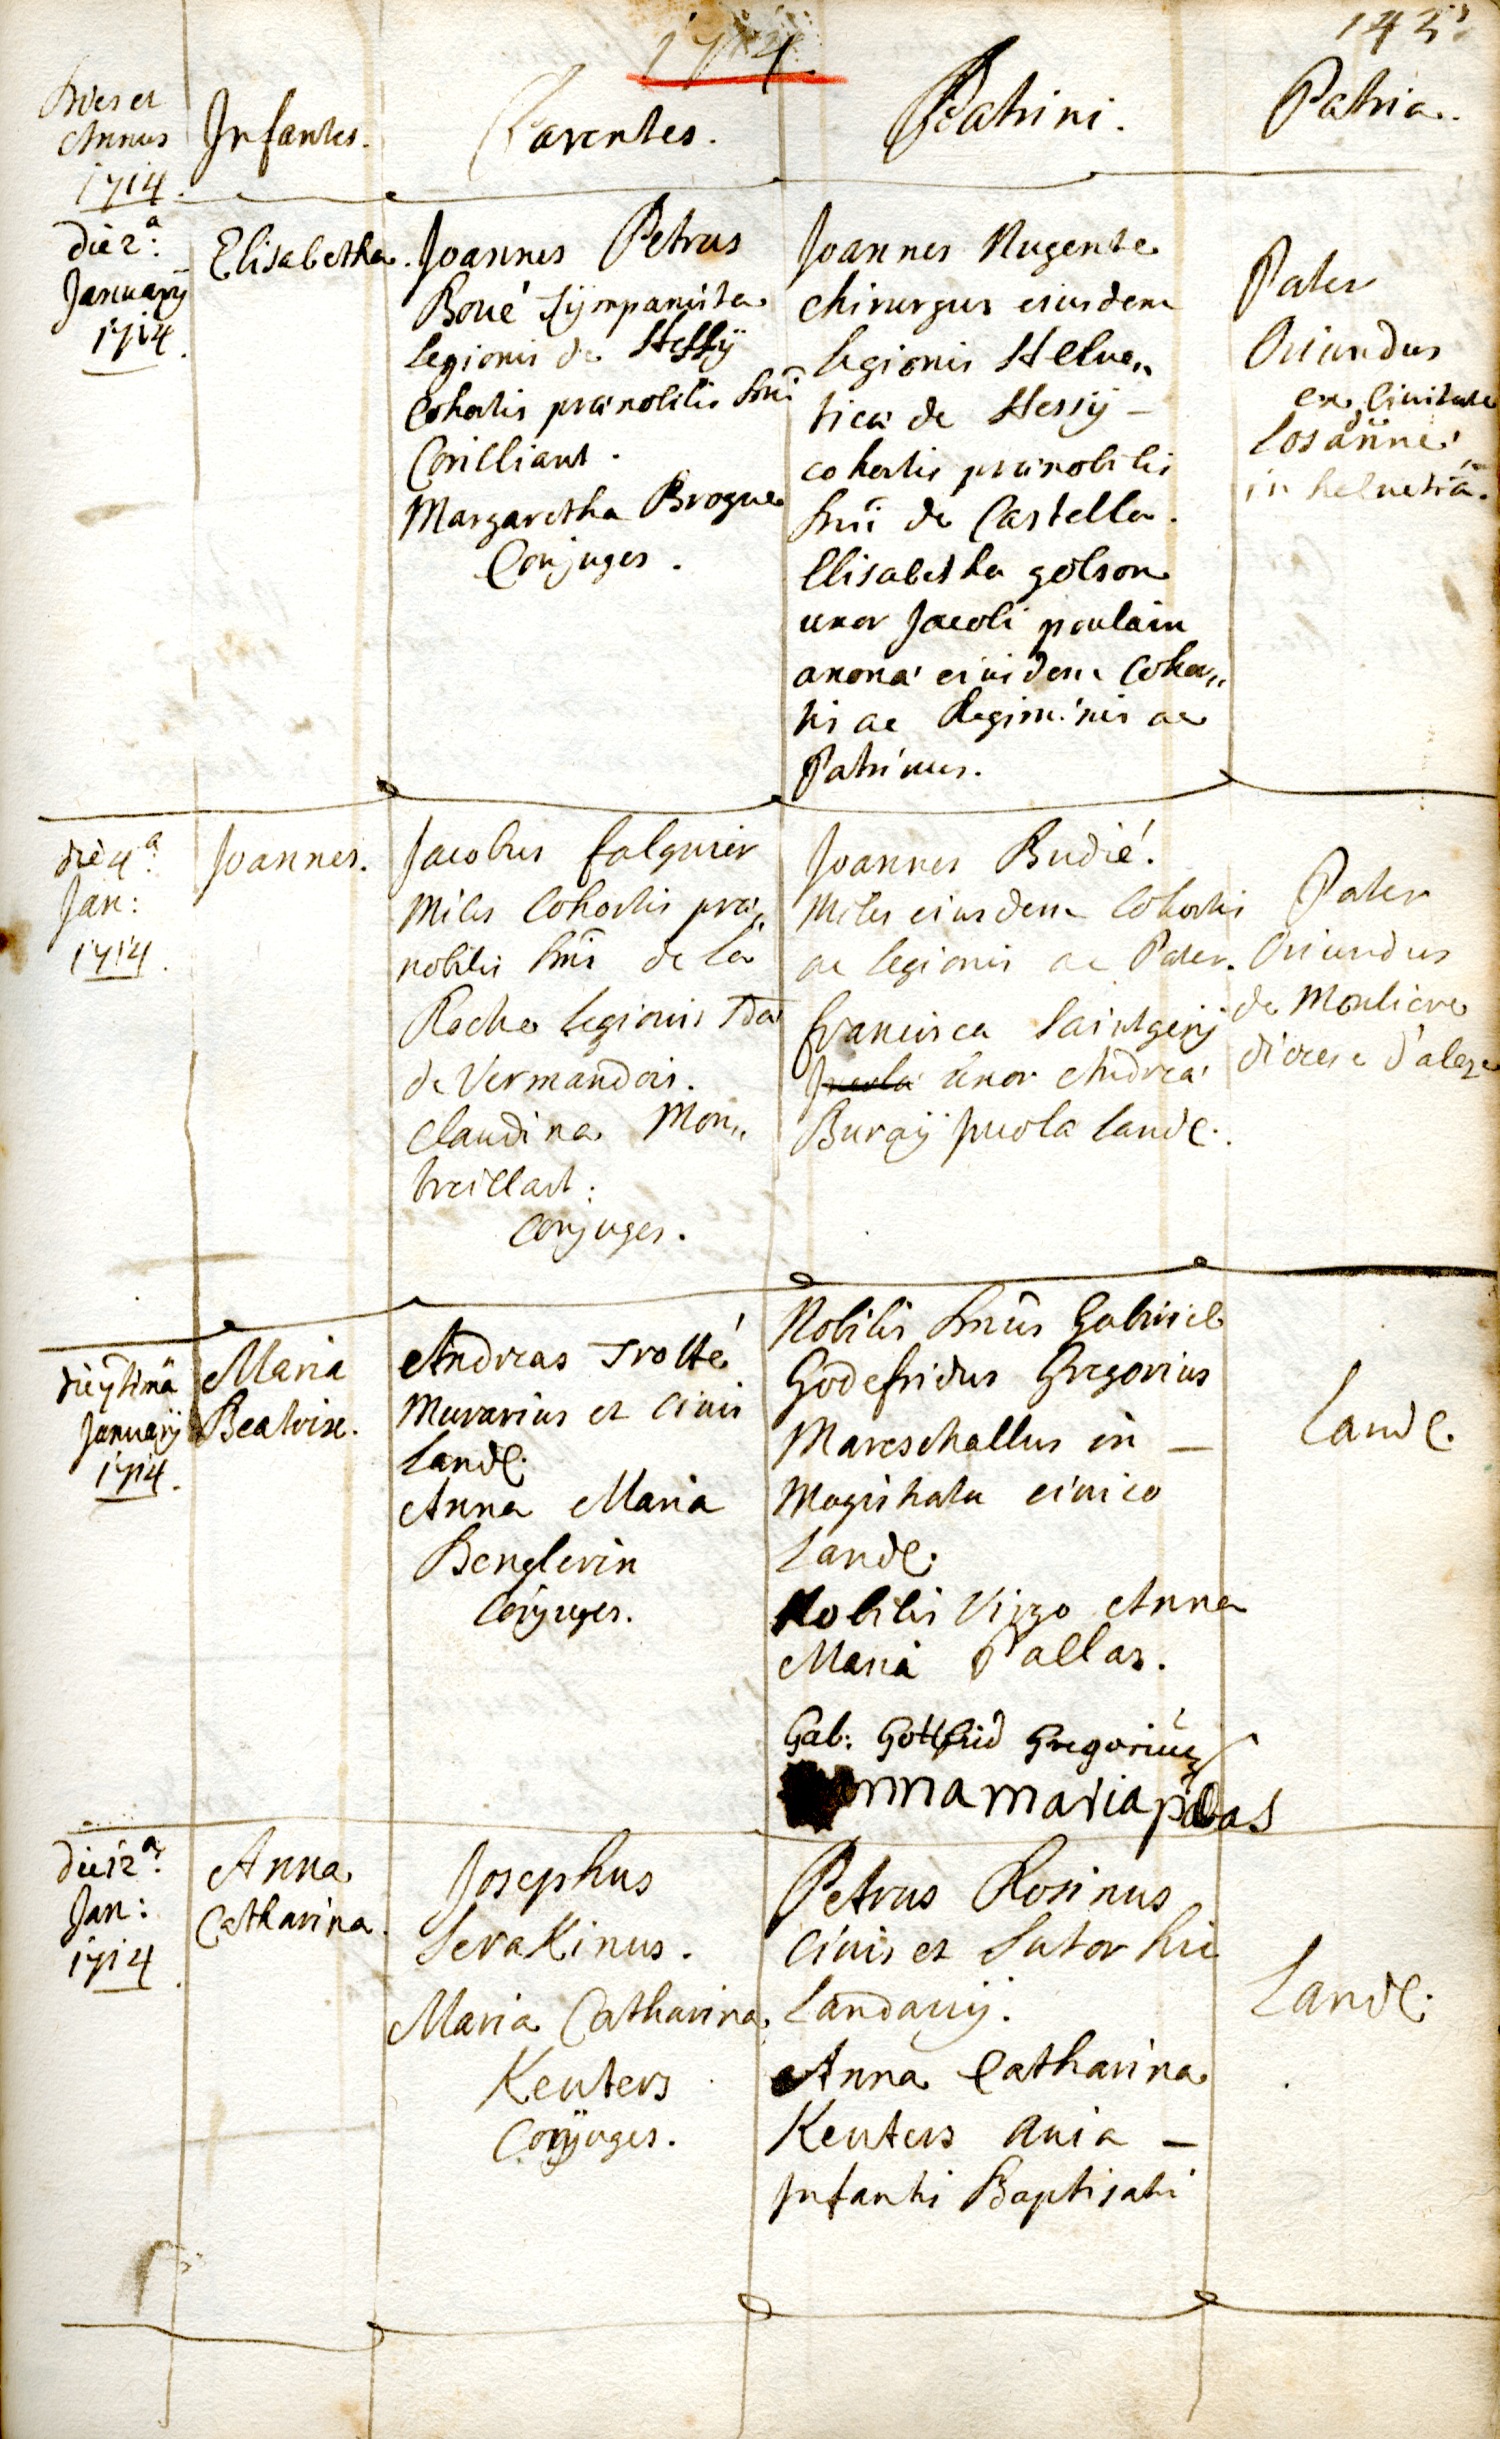 1714
143
Dies et
Annus
1714.
Infantes.
Parentes.
Patrini.
Patria.
die 2ª:
January
1714.
Elisabetha.
Joannes Petrus
Boué Tÿmpanista
legionis de Hessÿ
Cohortis prænobilis Dni
Corilliant.
Margaretha Brogne
Conjuges.
Joannes Nugente
chirurgus eiusdem
legionis Helue„
ticæ de Hessÿ –
cohortis prænobilis
Dni de Castella.
Elisabetha golson
uxor Jacobi poulain
anonæ eiusdem Cohor„
tis ac Regiminis ac
Patrinus.
Pater
Oriundus
ex Ciuitate
Losanne
in heluetia.
die 4ª:
Jan:
1714.
Joannes.
Jacobus falguier
Miles Cohortis præ„
nobilis Dni de la
Roche legionis
de Vermandois.
Claudina Mon„
treillart:
Conjuges.
Joannes Budié.
Miles eiusdem Cohortis
ac legionis ac Pater.
francisca Saintgerÿ
Incola uxor Andreæ
Buraÿ Incola Land:
Pater
Oriundus
de Mouliere
diœcese d'aleze
die 7tima
Januarÿ
1714.
Maria
Beatrix.
Andreas Trotté
Murarius et Ciuis
Land:
Anna Maria
Benglerin
Conjuges.
Nobilis Dnus Gabriel
Godefridus Gregorius
Mareschallus in –
Magistratu ciuico
Land:
Nobilis Virgo Anna
Maria Pallas.
Gab: Gottfrid Gregorius
annamariapallas
Land:
die 12ª:
Jan:
1714.
Anna
Catharina.
Josephus
Serakinus.
Maria Catharina
Keuters
Conjuges.
Petrus Rosinus
Ciuis et Sutor hic
Landauÿ.
Anna Catharina
Keuters auia –
Infantis Baptisati
Land: